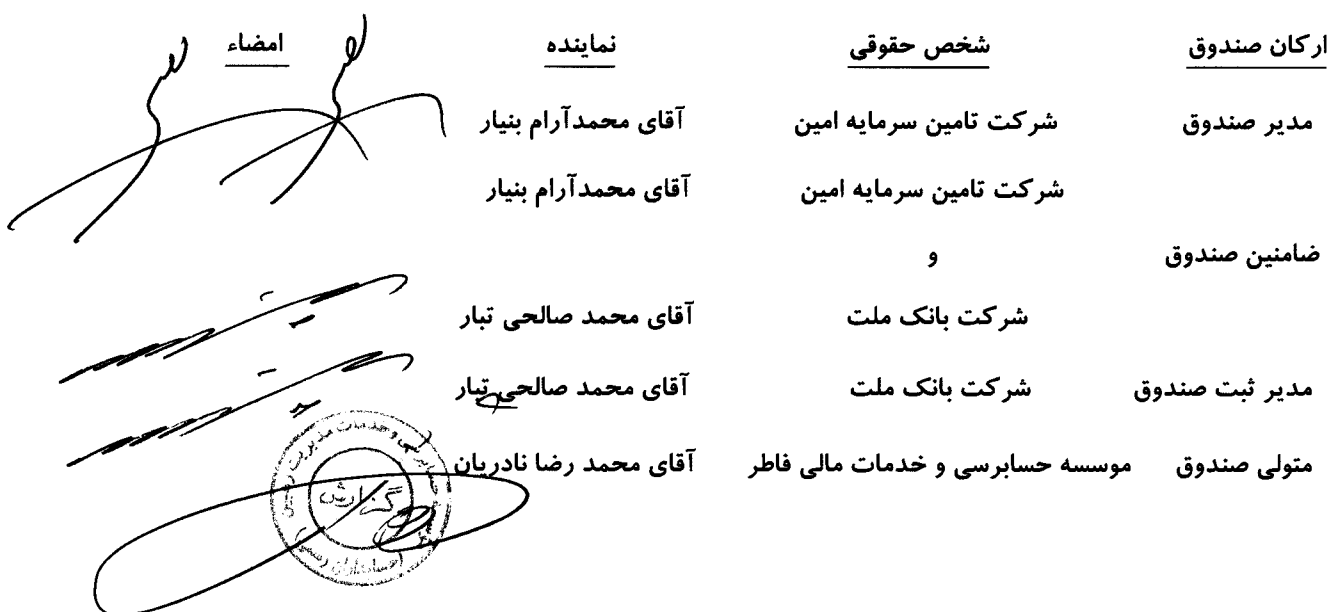 ارکان صندوق شخص حقوقی نماینده امضاء
مدیر صندوق شرکت تامین سرمایه امین آقای محمدآرام بنیار
شرکت تامین سرمایه امین آقای محمدآرام بنیار
ضامنین صندوق و
شرکت بانک ملت آقای محمد صالحی تبار
مدیر ثبت صندوق شرکت بانک ملت آقای محمد صالحی تبار
متولی صندوق موسسه حسابرسی و خدمات مالی فاطر آقای محمد رضا نادریان
گزارش